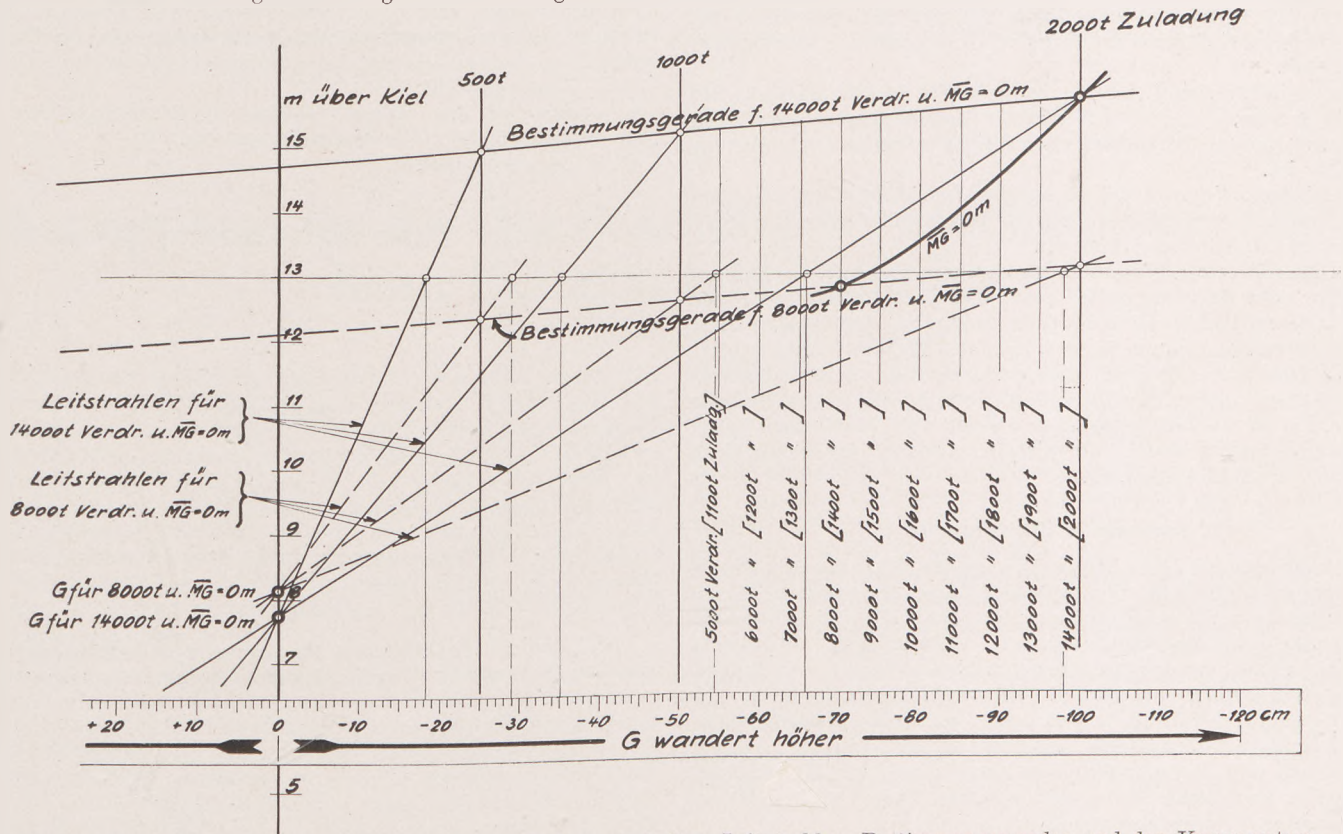 2000t Zuladung
1000t
500t
m über Kiel
Bestimmungsgerade f. 14000t Verdr. u. MG = 0m
15
14
13
12
11
10
9
8
7
5
MG = 0m
Bestimmungsgerade f. 8000t Verdr. u. MG = 0m
Leitstrahlen für
14000t Verdr. u. MG = 0m
Leitstrahlen für
8000t Verdr. u. MG = 0m
G für 8000t u. MG = 0m
G für 14000t u. MG = 0m
5000t Verdr. [1100t Zuladg.]
6000t " [1200t " ]
7000t " [1300t " ]
8000t " [1400t " ]
9000t " [1500t " ]
10000t " [1600t " ]
11000t " [1700t " ]
12000t " [1800t " ]
13000t " [1900t " ]
14000t " [2000t " ]
+20 +10 0 -10 -20 -30 -40 -50 -60 -70 -80 -90 -100 -110 -120 cm
G wandert höher